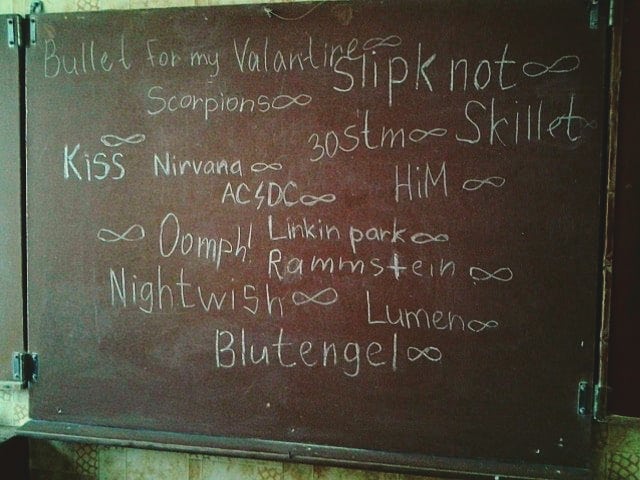 Bullet for my Valantine ∞
Slipknot ∞
Scorpions ∞
30stm ∞
Skillet ∞
∞
Kiss
Nirvana ∞
AC⚡DC ∞
HiM ∞
∞ Oomph!
Linkin park ∞
Rammstein ∞
Nightwish ∞
Lumen ∞
Blutengel ∞